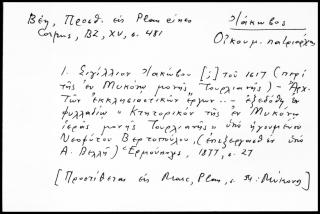 Βέη, Προσθ. εἰς Plan εἰκεο
Corpus, BZ, XV, σ. 481
Ἰάκωβος
Οἰκουμ. πατριάρχης
1. Σιγίλλιον Ἰακώβου [;] τοῦ 1617 (περὶ
τῆς ἐν Μυκόνῳ μονῆς Τουρλιανῆς) - Ἀρχ.
Τῶν ἐκκλησιαστικῶν ἔργων -- ἐξεδόθη ἐν
φυλλαδίῳ « Κτητορικὸν τῆς ἐν Μυκόνῳ
ἱερᾶς μονῆς Τουρλιανῆς » ὑπὸ ἡγουμένου
Νεοφύτου Βερτοπούλου, (ἐπεξεργασθὲν ὑπὸ
Α. Δελλῆ) Ἑρμούπολις, 1877, σ. 27
[Προστίθεται εἰς Marc, Plan, σ. Μύκονος]